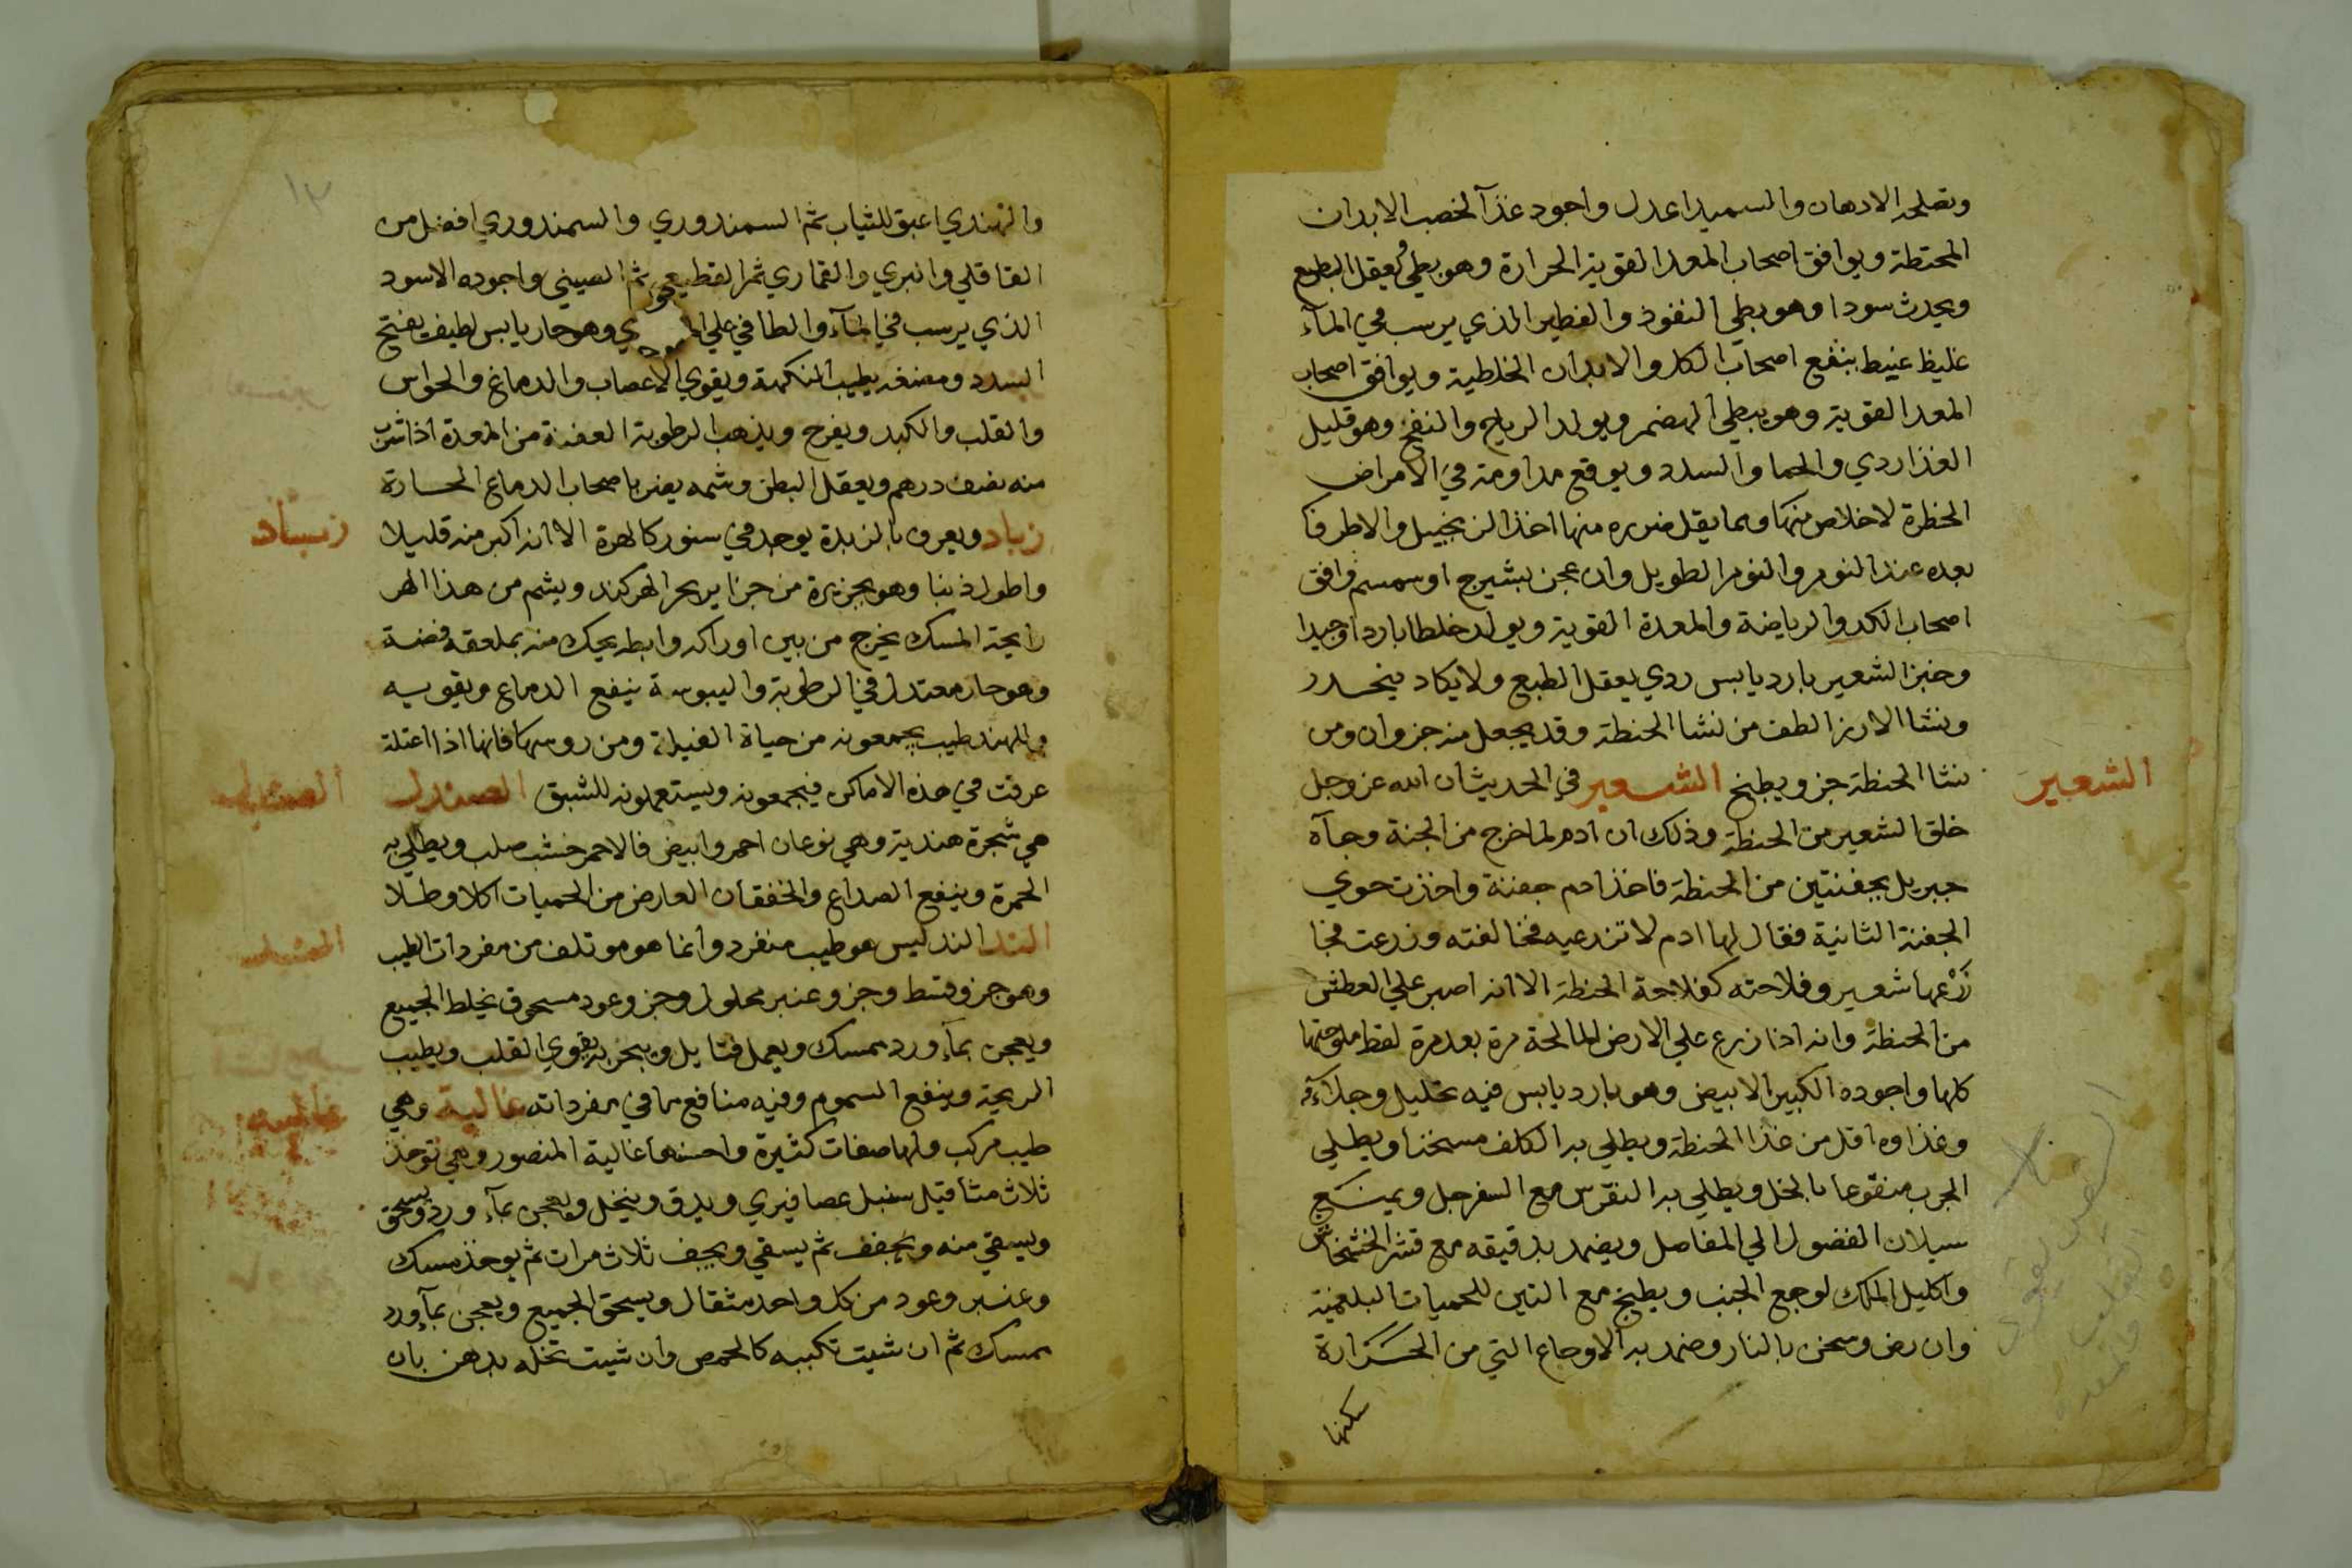 وتصلحه الادهان والسميد اعدل واجود غذآ لخصب الابدان
المحتطة ويوافق اصحاب المعد القوية الحرارة وهو بطي ويعقل البطبع
ويحدث سودا وهو بطي النفوذ والفطير الذي يرسب في المآء
غليظ غبيط ينفع اصحاب الكد والابدان الخلطية ويوافق اصحاب
المعد القوية وهو بطي الهضم ويولد الرياح والنفخ وهو قليل
الغذا ردي والحما والسدد ويوقع مداومته في الامراض
الخطرة لاخلاص منها ومما يقل ضرره منها اخذ الزنجبيل والاطرفا
بعده عند النوم والنوم الطويل وان عجن بشيرج او سمسم وافق
اصحاب الكد والرياضة والمعدة القوية ويولد خلطا باردا وجيدا
وخبز الشعير بارد يابس ردي يعقل الطبع ولا يكاد ينحدر
ونشا الارز الطف من نشا الحنطة وقد يجعل منه جزوان ومن
نشا الحنطة جز ويطبخ الشعير في الحديث ان الله عز وجل
الشعير
خلق الشعير من الحنطة وذلك ان ادم لما خرج من الجنة وجآه
جبريل بجفنتين من الحنطة فاخذ ادم جفنة واخذت حوي
الجفنة الثانية فقال لها ادم لا تزرعيه فخالفته وزرعت فجا
زَرْعها شعير وفلاحته كفلاحة الحنطة الا انه اصبر علي العطش
من الحنطة وانه اذا زرع علي الارض المالحة مرة بعد مرة لقط ملوحتها
كلها واجوده الكبير الابيض وهو بارد يابس فيه تحليل وجلآء
وغذاوه اقل من غذا الحنطة ويطلي به الكلف مسخنا ويطلي
الجرب منقوعا بالخل ويطلي به النقرس مع السفرجل ويمنع
سيلان الفضول الي المفاصل ويضمد بدقيقه مع قشر الخشخاش
واكليل الملك لوجع الجنب ويطبخ مع التين للحميات البلغمية
وان رض وسخن بالنار وضمد به الاوجاع التي من الحَرَارة
سكنها
١٣
والهندي اعبق للثياب ثم السمندوري والسمندوري افضل من
القاقلي والبري والقماري ثم القطيعي ثم الصيني واجوده الاسود
الذي يرسب في المآء والطافي علي المآء ردي وهو حار يابس لطيف يفتح
السدد ومضغه يطيب النكهة ويقوي الاعصاب والدماغ والحواس
والقلب والكبد ويفرح ويذهب الرطوبة العفنة من المعدة اذا شرب
منه نصف درهم ويعقل البطن وشمه يضر باصحاب الدماغ الحارة
زباد ويعرف بالزبدة يوجد في سنور كالهرة الا انه اكبر منه قليلا
زباد
واطول ذنبا وهو بجزيرة من جزاير بحر الهركند ويشم من هذا الهر
رايحة المسك يخرج من بين اوراكه وابطه يحك منه بملعقه فضة
وهو حار معتدل في الرطوبة واليبوسة ينفع الدماغ ويقويه
وللهند طيب يجمعونه من حياة الفيلة ومن روسها فانها اذا اعتلة
عرقت في هذه الاماكن فيجمعونه ويستعملونه للشبق الصندل
الصندل
هي شجرة هندية وهي نوعان احمر وابيض فالاحمر خشب صلب ويطلي به
الحمرة وينفع الصداع والخفقان العارض من الحميات اكلا وطلا
الند الند ليس هو طيب منفرد وانما هو موتلف من مفردات الطيب
وهو جز وقسط وجز وعنبر محلول وجز وعود مسحوق يخلط الجميع
ويعجن بمآء ورد مسك ويعمل فتايل ويبخر به يقوي القلب ويطيب
الريحة وينفع السموم وفيه منافع ما في مفرداته غالية وهي
غالية
طيب مركب ولها صفات كثيرة واحسنها غالية المنصور وهي توخذ
ثلاث مثاقيل سنبل عصافيري ويدق وينخل ويعجن بمآء ورد ويسحق
ويسقي منه ويجفف ثم يسقي ويجفف ثلاث مرات ثم يوخذ مسك
وعنبر وعود من كل واحد مثقال ويسحق الجميع ويعجن بمآء ورد
مسك ثم ان شيت تكببه كالحمص وان شيت تحله بدهن بان